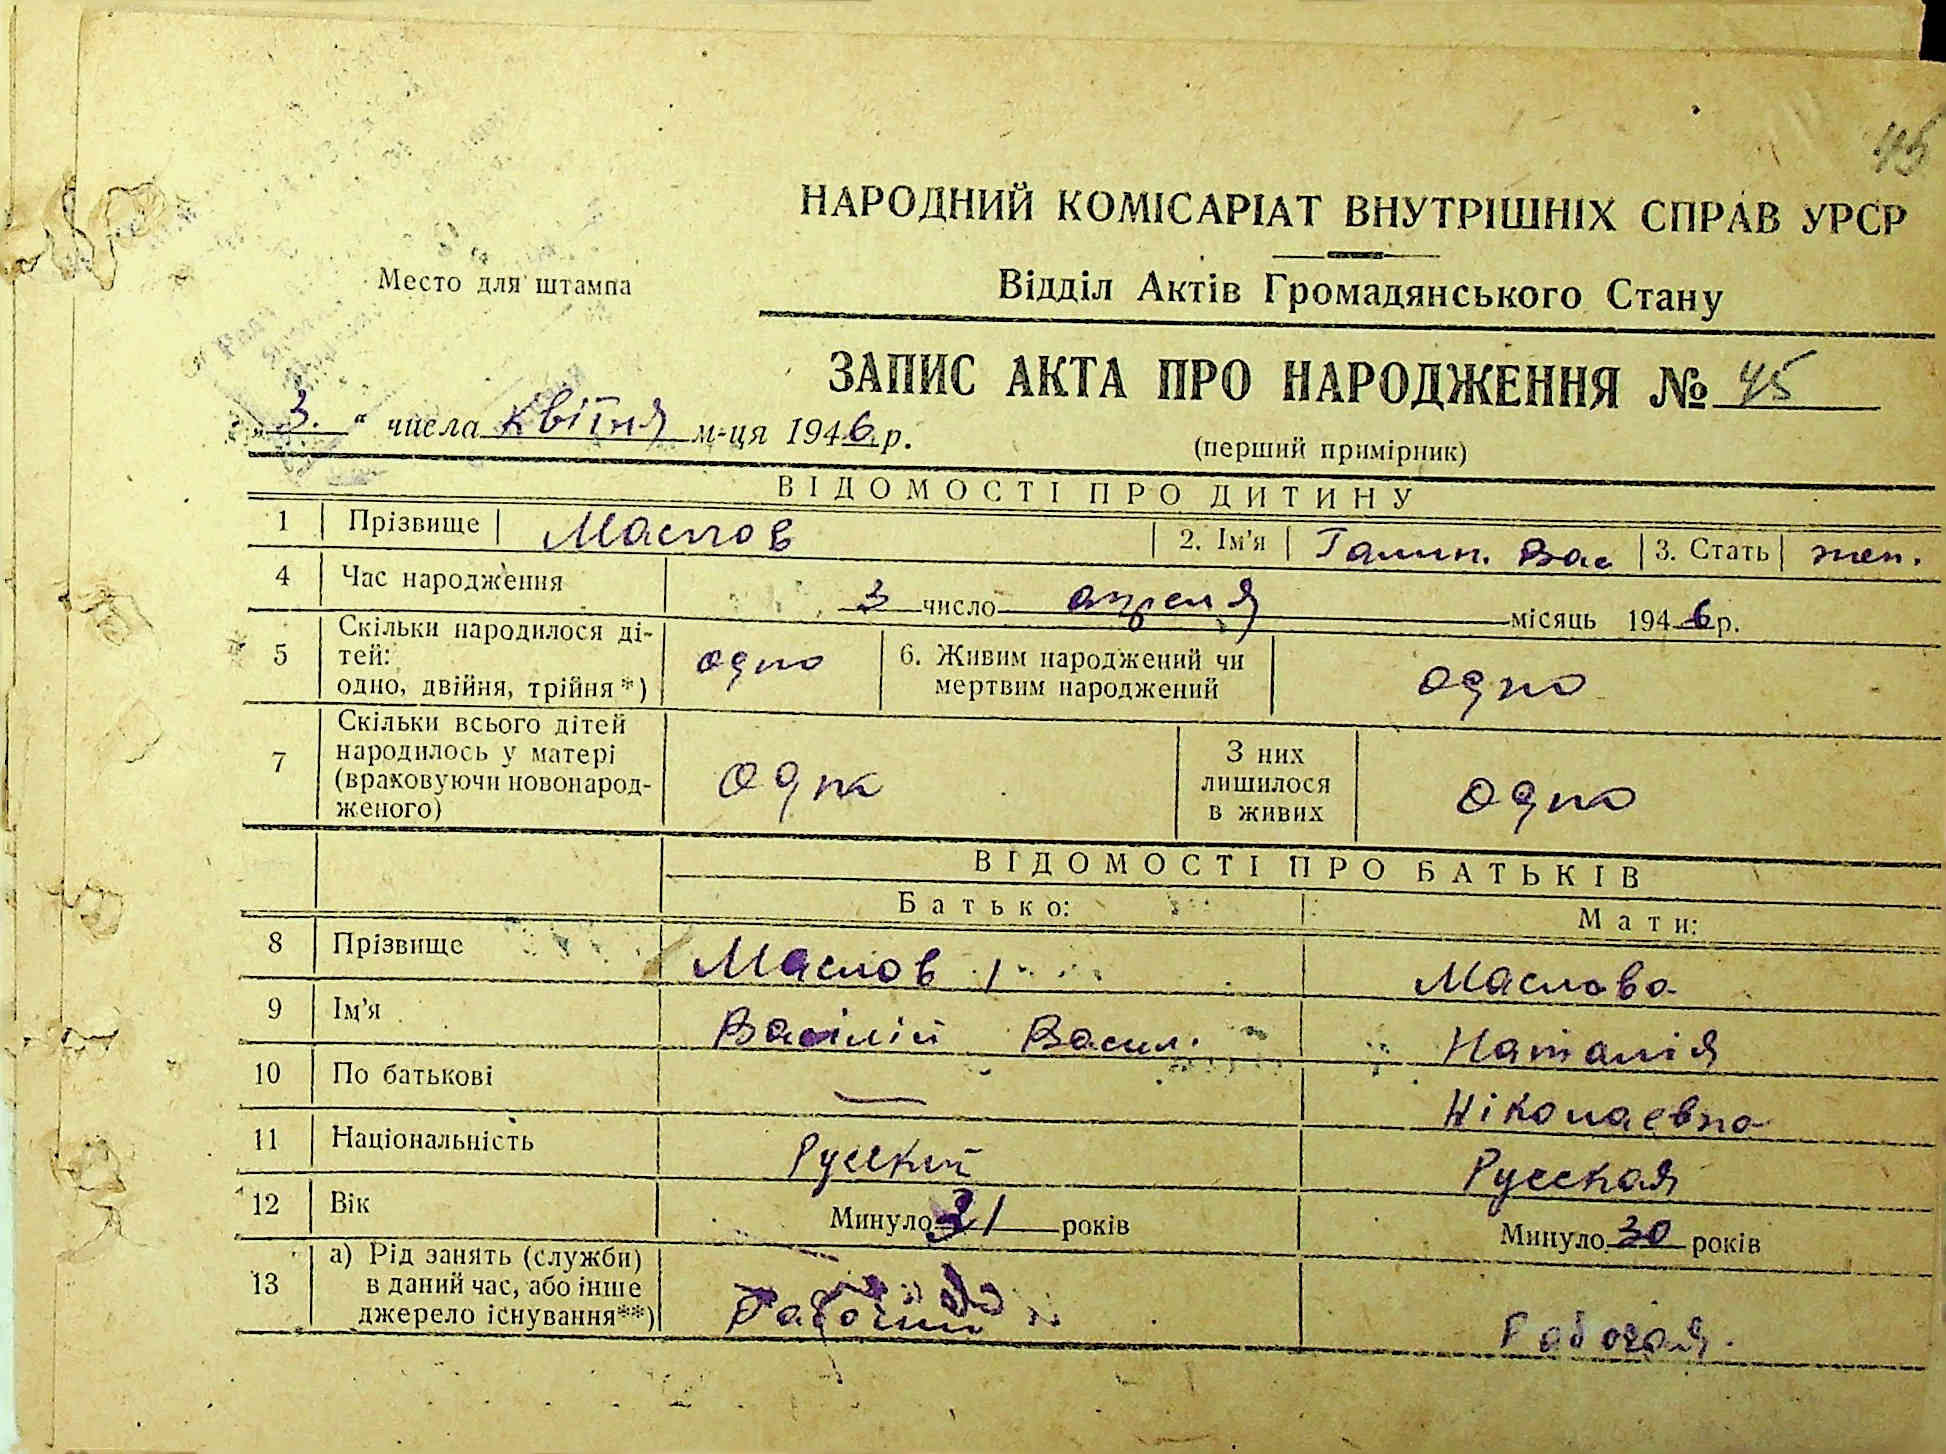 45
НАРОДНИЙ КОМІСАРІАТ ВНУТРІШНІХ СПРАВ УРСР
Место для штампа
Відділ Актів Громадянського Стану
ЗАПИС АКТА ПРО НАРОДЖЕННЯ № 45
"3." числа квітня м-ця 1946 р.
(перший примірник)
ВІДОМОСТІ ПРО ДИТИНУ
1 Прізвище Маслов 2. Ім'я Галин. Вас 3. Стать жен.
4 Час народження 3 число апреля місяць 1946 р.
5 Скільки народилося ді-
тей:
одно, двійня, трійня*) одно 6. Живим народжений чи
мертвим народжений одно
7 Скільки всього дітей
народилось у матері
(враховуючи новонарод-
женого) одна З них
лишилося
в живих одно
ВІДОМОСТІ ПРО БАТЬКІВ
Батько: Мати:
8 Прізвище Маслов Маслова
9 Ім'я Василій Васил. Наталія
10 По батькові — Ніколаевна
11 Національність Русский Русская
12 Вік Минуло 31 років Минуло 30 років
13 а) Рід занять (служби)
в даний час, або інше
джерело існування**) Рабочий Рабочая.